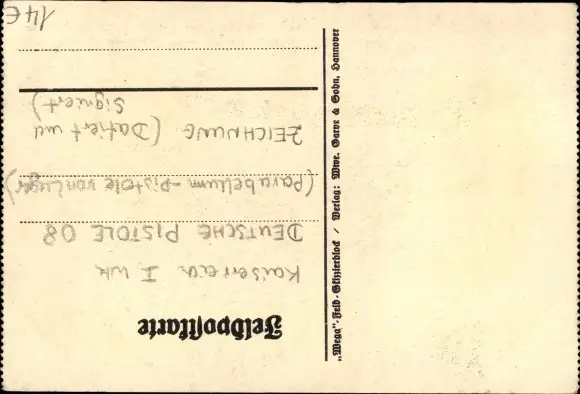 Feldpostkarte
Kaiserreich I. WK
DEUTSCHE PISTOLE 08
(Parabellum-Pistole von Luger)
ZEICHNUNG (Datiert und
Signiert)
14€
„Wega“-Feld-Skizzierblock / Verlag: Wwe. Garve & Sohn, Hannover